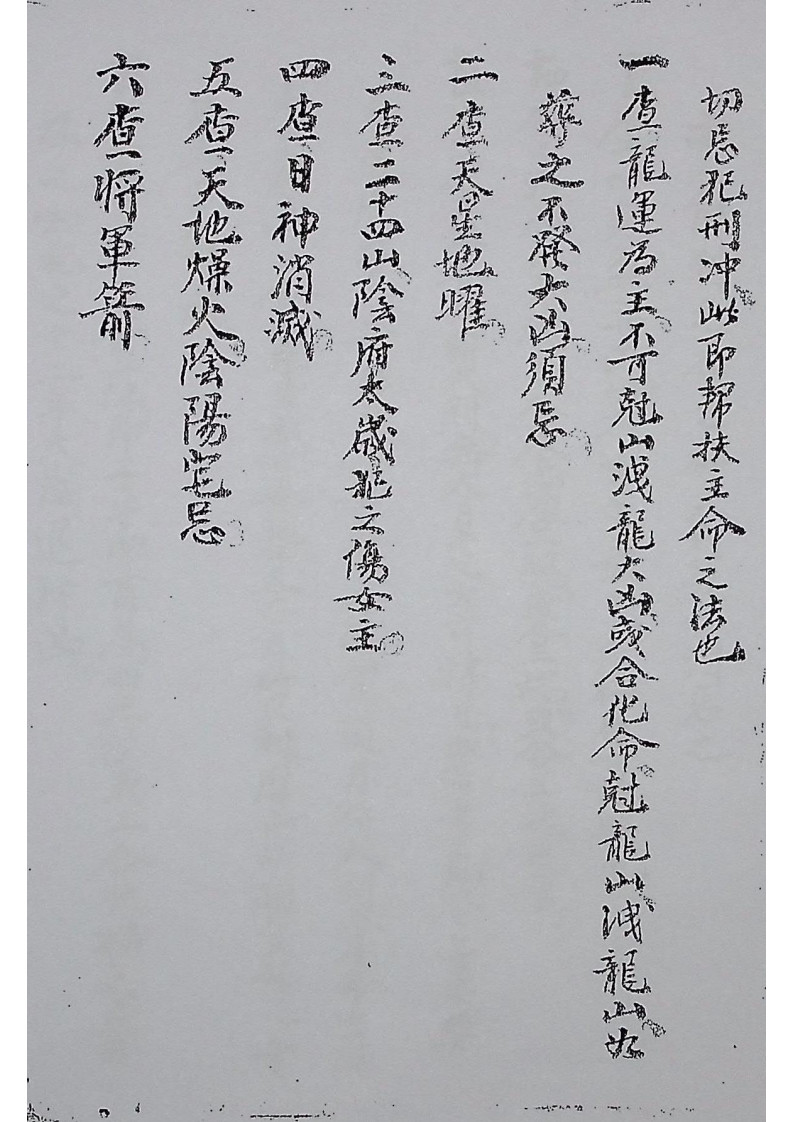 切忌犯刑冲此即帮扶主命之法也
一查龍運為主不可尅山洩龍大凶或合化命尅龍山洩龍山如
葬之不發大凶須忌
二查天星地曜
三查二十四山陰府太歲犯之傷女主
四查日神消滅
五查天地燥火陰陽定忌
六查將軍箭